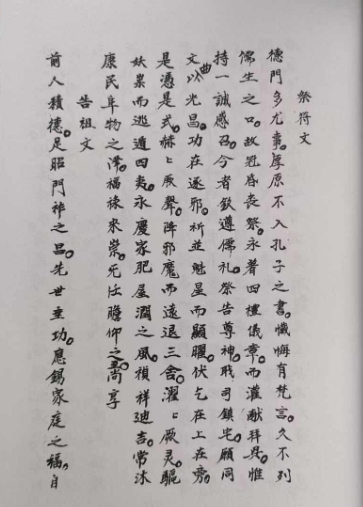 祭符文
德門多尤事。厚原不入孔子之書。懺悔有梵言。久不列
儒生之口。故冠昏喪祭。永著四禮儀章。而灌献拜興。惟
持一誠感召。今者欽遵儒礼。祭告尊神。戝司鎮宅。願同
文曲以光昌。功在逐邪。祈並魁星而顯曜。伏乞在上在旁。
是憑是式。赫〻厥聲。阵邪魔而遠退三舍。濯〻厥灵。驅
妖祟而逃遁四夷。永慶家肥屋潤之風。禎祥迪吉。常沐
康民阜物之澤。福祿來崇。死任瞻仰之至。尚享
告祖文
前人積德。足昭門祚之昌。先世垂功。應錫家庭之福。自